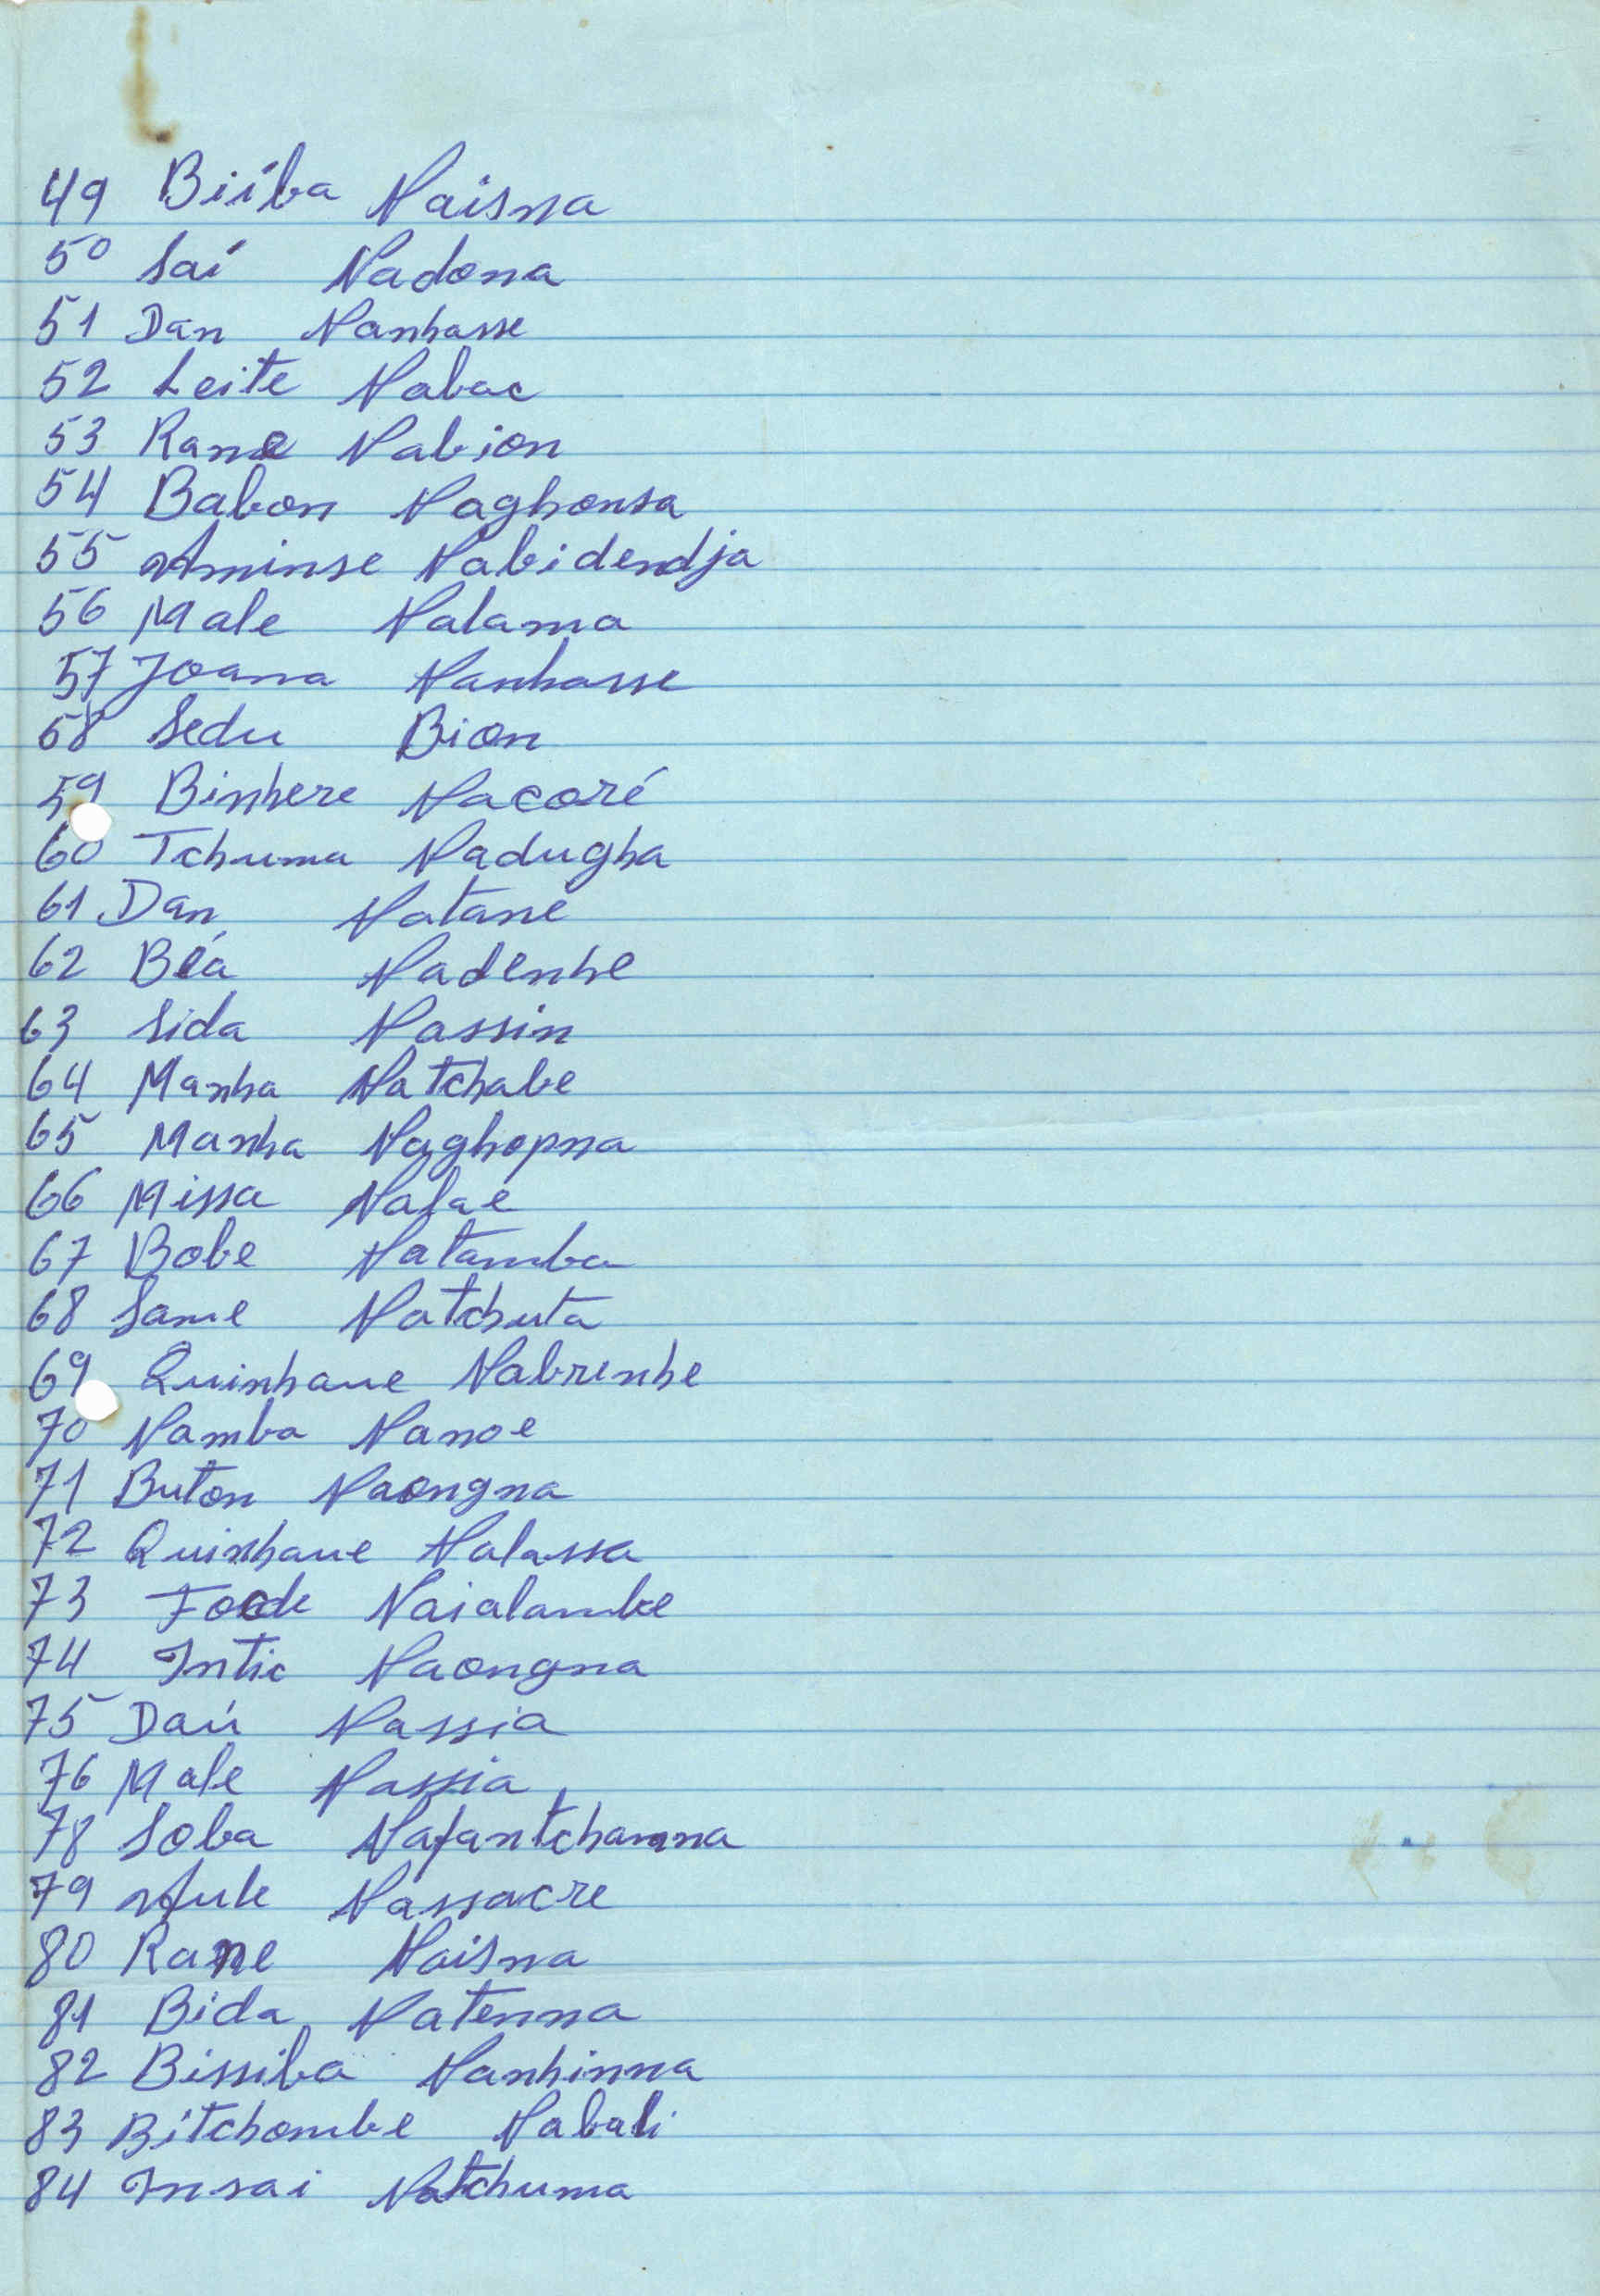 49 Biíba Naisna
50 Saí Nadona
51 Dan Nanhasse
52 Leite Nabac
53 Rane Nabion
54 Babon Naghonsa
55 Aminse Nabidendja
56 Male Nalama
57 Joana Nanhasse
58 Sedu Bion
59 Binhere Nacoré
60 Tchuma Nadugha
61 Dan Natane
62 Béa Nadenhe
63 Sida Nassin
64 Manha Natchabe
65 Manha Naghopna
66 Missa Nalae
67 Bobe Natamba
68 Same Natchuta
69 Quinhaue Nabrenhe
70 Namba Nanoe
71 Buton Naongna
72 Quinhaue Nalassa
73 Foode Naialambe
74 Intic Naongna
75 Daú Nassia
76 Male Nassia
78 Soba Nafantchamna
79 Aule Nassacre
80 Rane Naisna
81 Bida Natenna
82 Bissiba Nanhinna
83 Bitchombe Nabali
84 Insai Natchuma